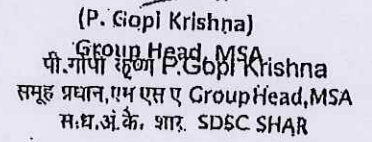 (P. Gopi Krishna)
Group Head, MSA
पी.गोपी कृष्ण P.Gopi Krishna
समूह प्रधान,एम एस ए GroupHead,MSA
स.ध.अं.के. शार SDSC SHAR